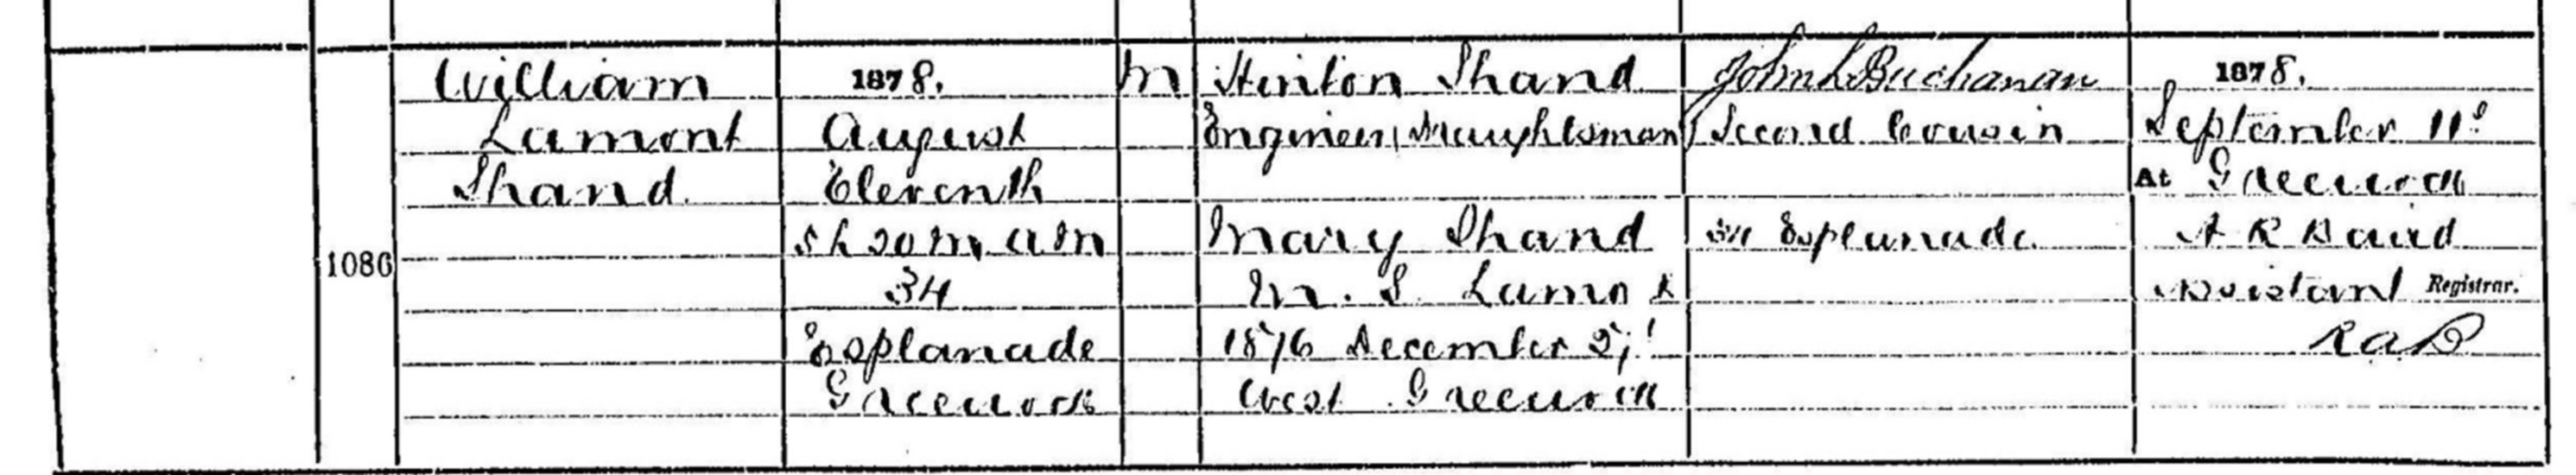 1086
William
Lamont
Shand.
1878.
August
Eleventh
5 h 20 m, A M
34
Esplanade
Greenock
M
Hinton Shand
Engineer, Draughtsman
Mary Shand
M. S. Lamont
1876 December
West Greenock
John L Buchanan
Second Cousin
34 Esplanade.
1878.
September 11th
At Greenock
A R Baird
Assistant Registrar.